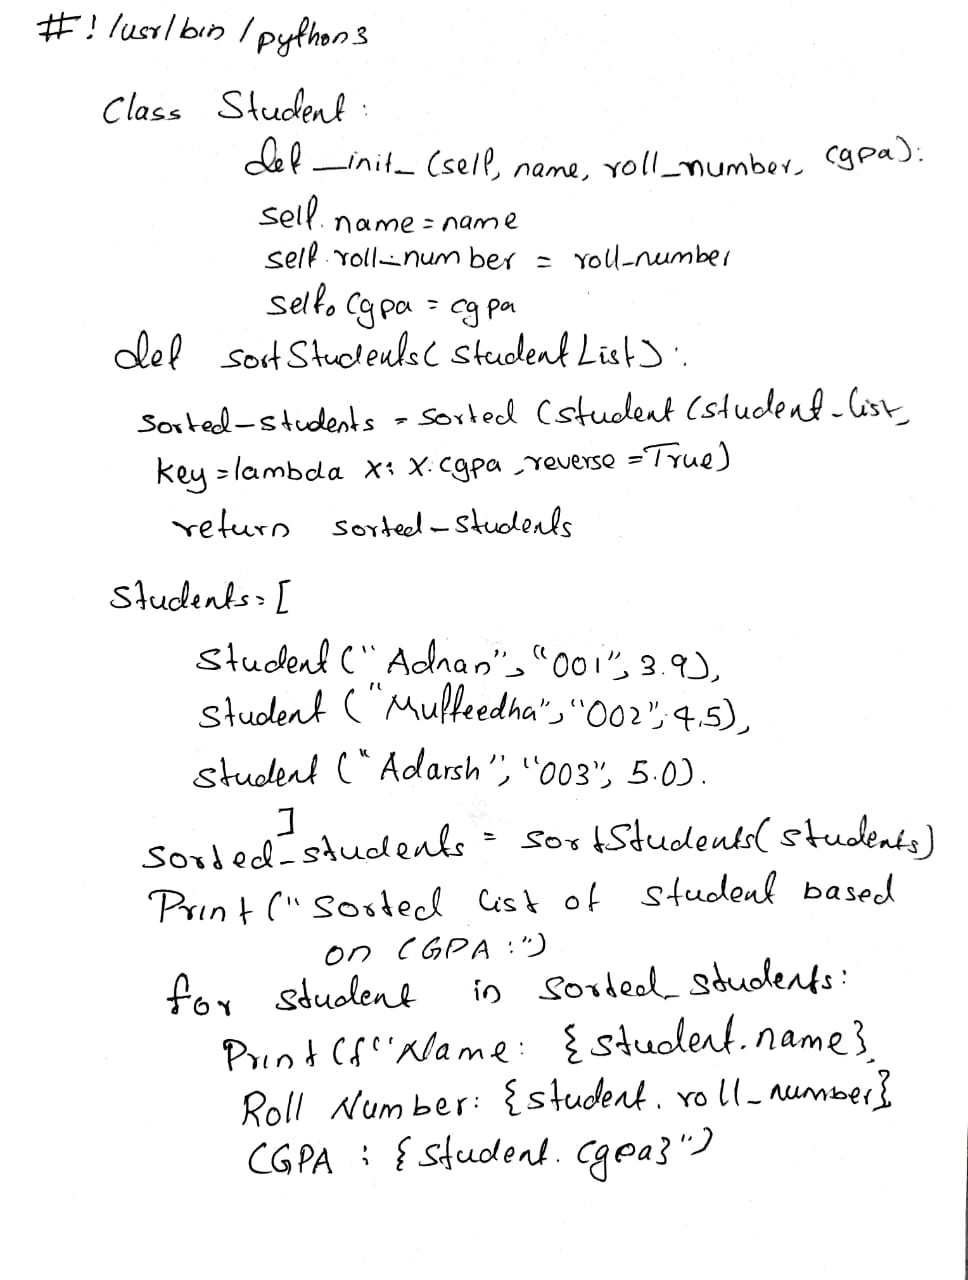 #! /usr/bin/python3
Class Student:
def _init_ (self, name, roll_number, cgpa):
self.name = name
self.roll_number = roll_number
self.cgpa = cgpa
def sortStudents(studentList):
sorted_students = sorted (student (student_list,
key = lambda x: x.cgpa, reverse = True)
return sorted_students
Students = [
Student ("Adnan", "001", 3.9),
student ("Muffeedha", "002", 4.5),
student ("Adarsh", "003", 5.0).
]
sorted_students = sortStudents(students)
Print ("sorted list of student based
on CGPA:")
for student in sorted_students:
Print (f"Name: {student.name},
Roll Number: {student.roll_number},
CGPA : {student.cgpa}")